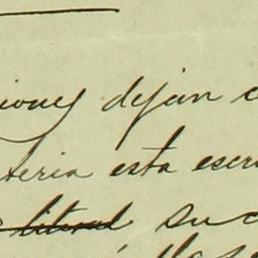 iones dejan
teria esta escri
literal suc